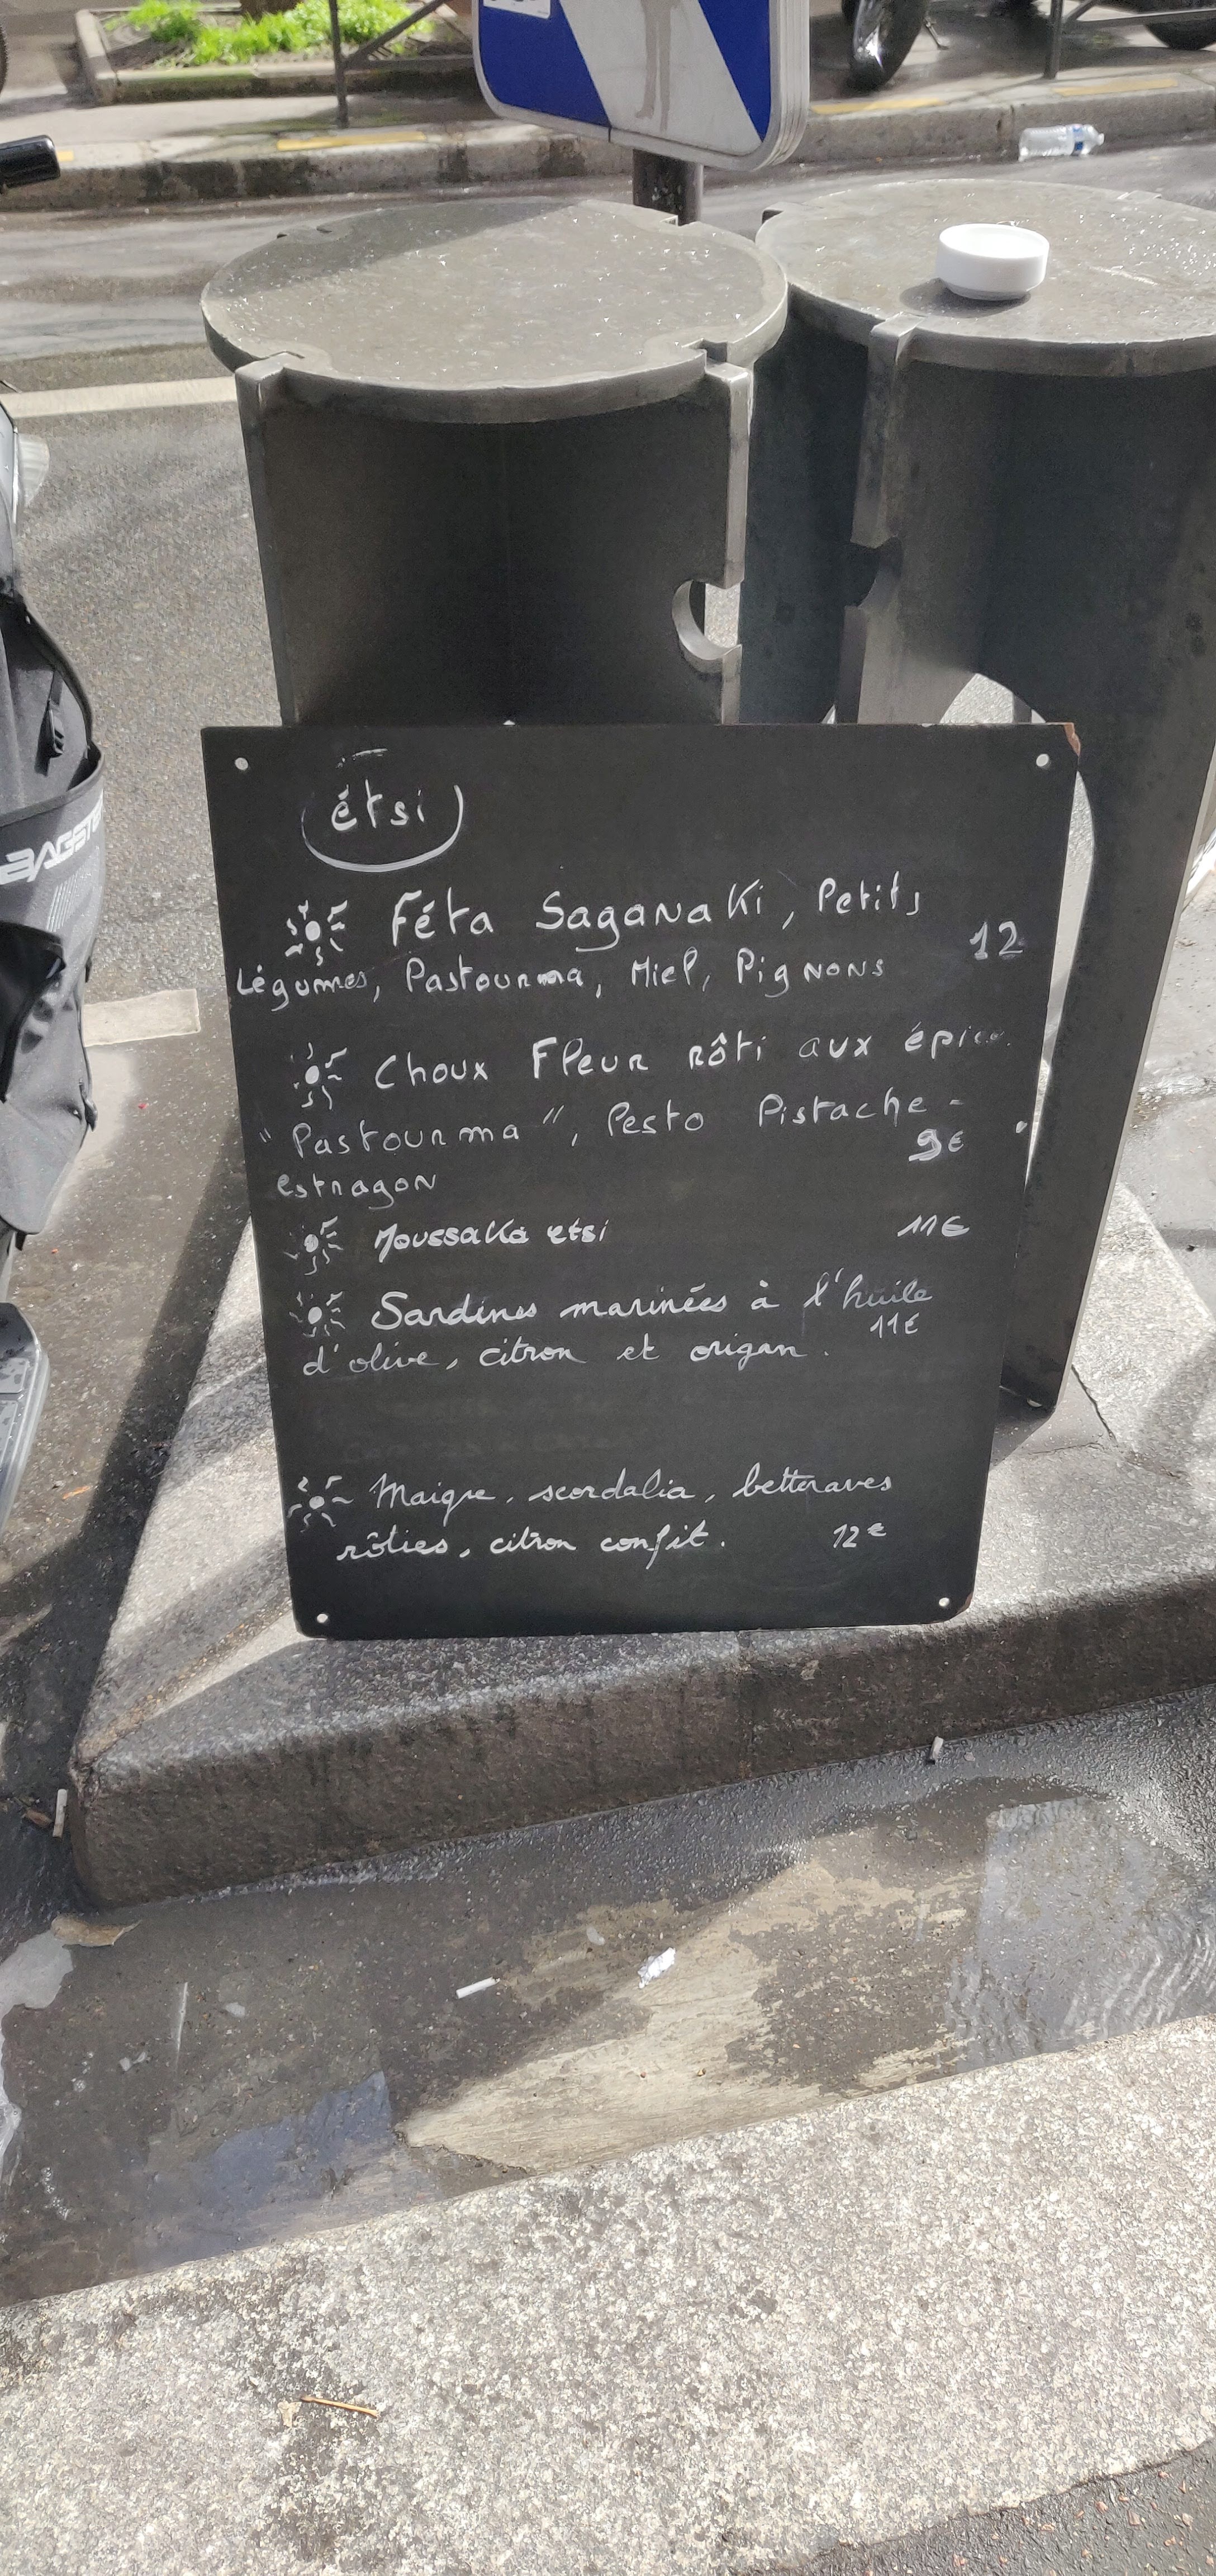 étsi
Féta Saganaki, Petits
12
Légumes, Pastourma, Miel, Pignons
Choux Fleur rôti aux
"Pastourma", Pesto Pistache-
9€
estragon
Moussaka etsi 11€
Sardines marinées à l'huile
11€
d'olive, citron et origan.
Maigre, scordalia, betteraves
rôties, citron confit. 12€
BAGSTER